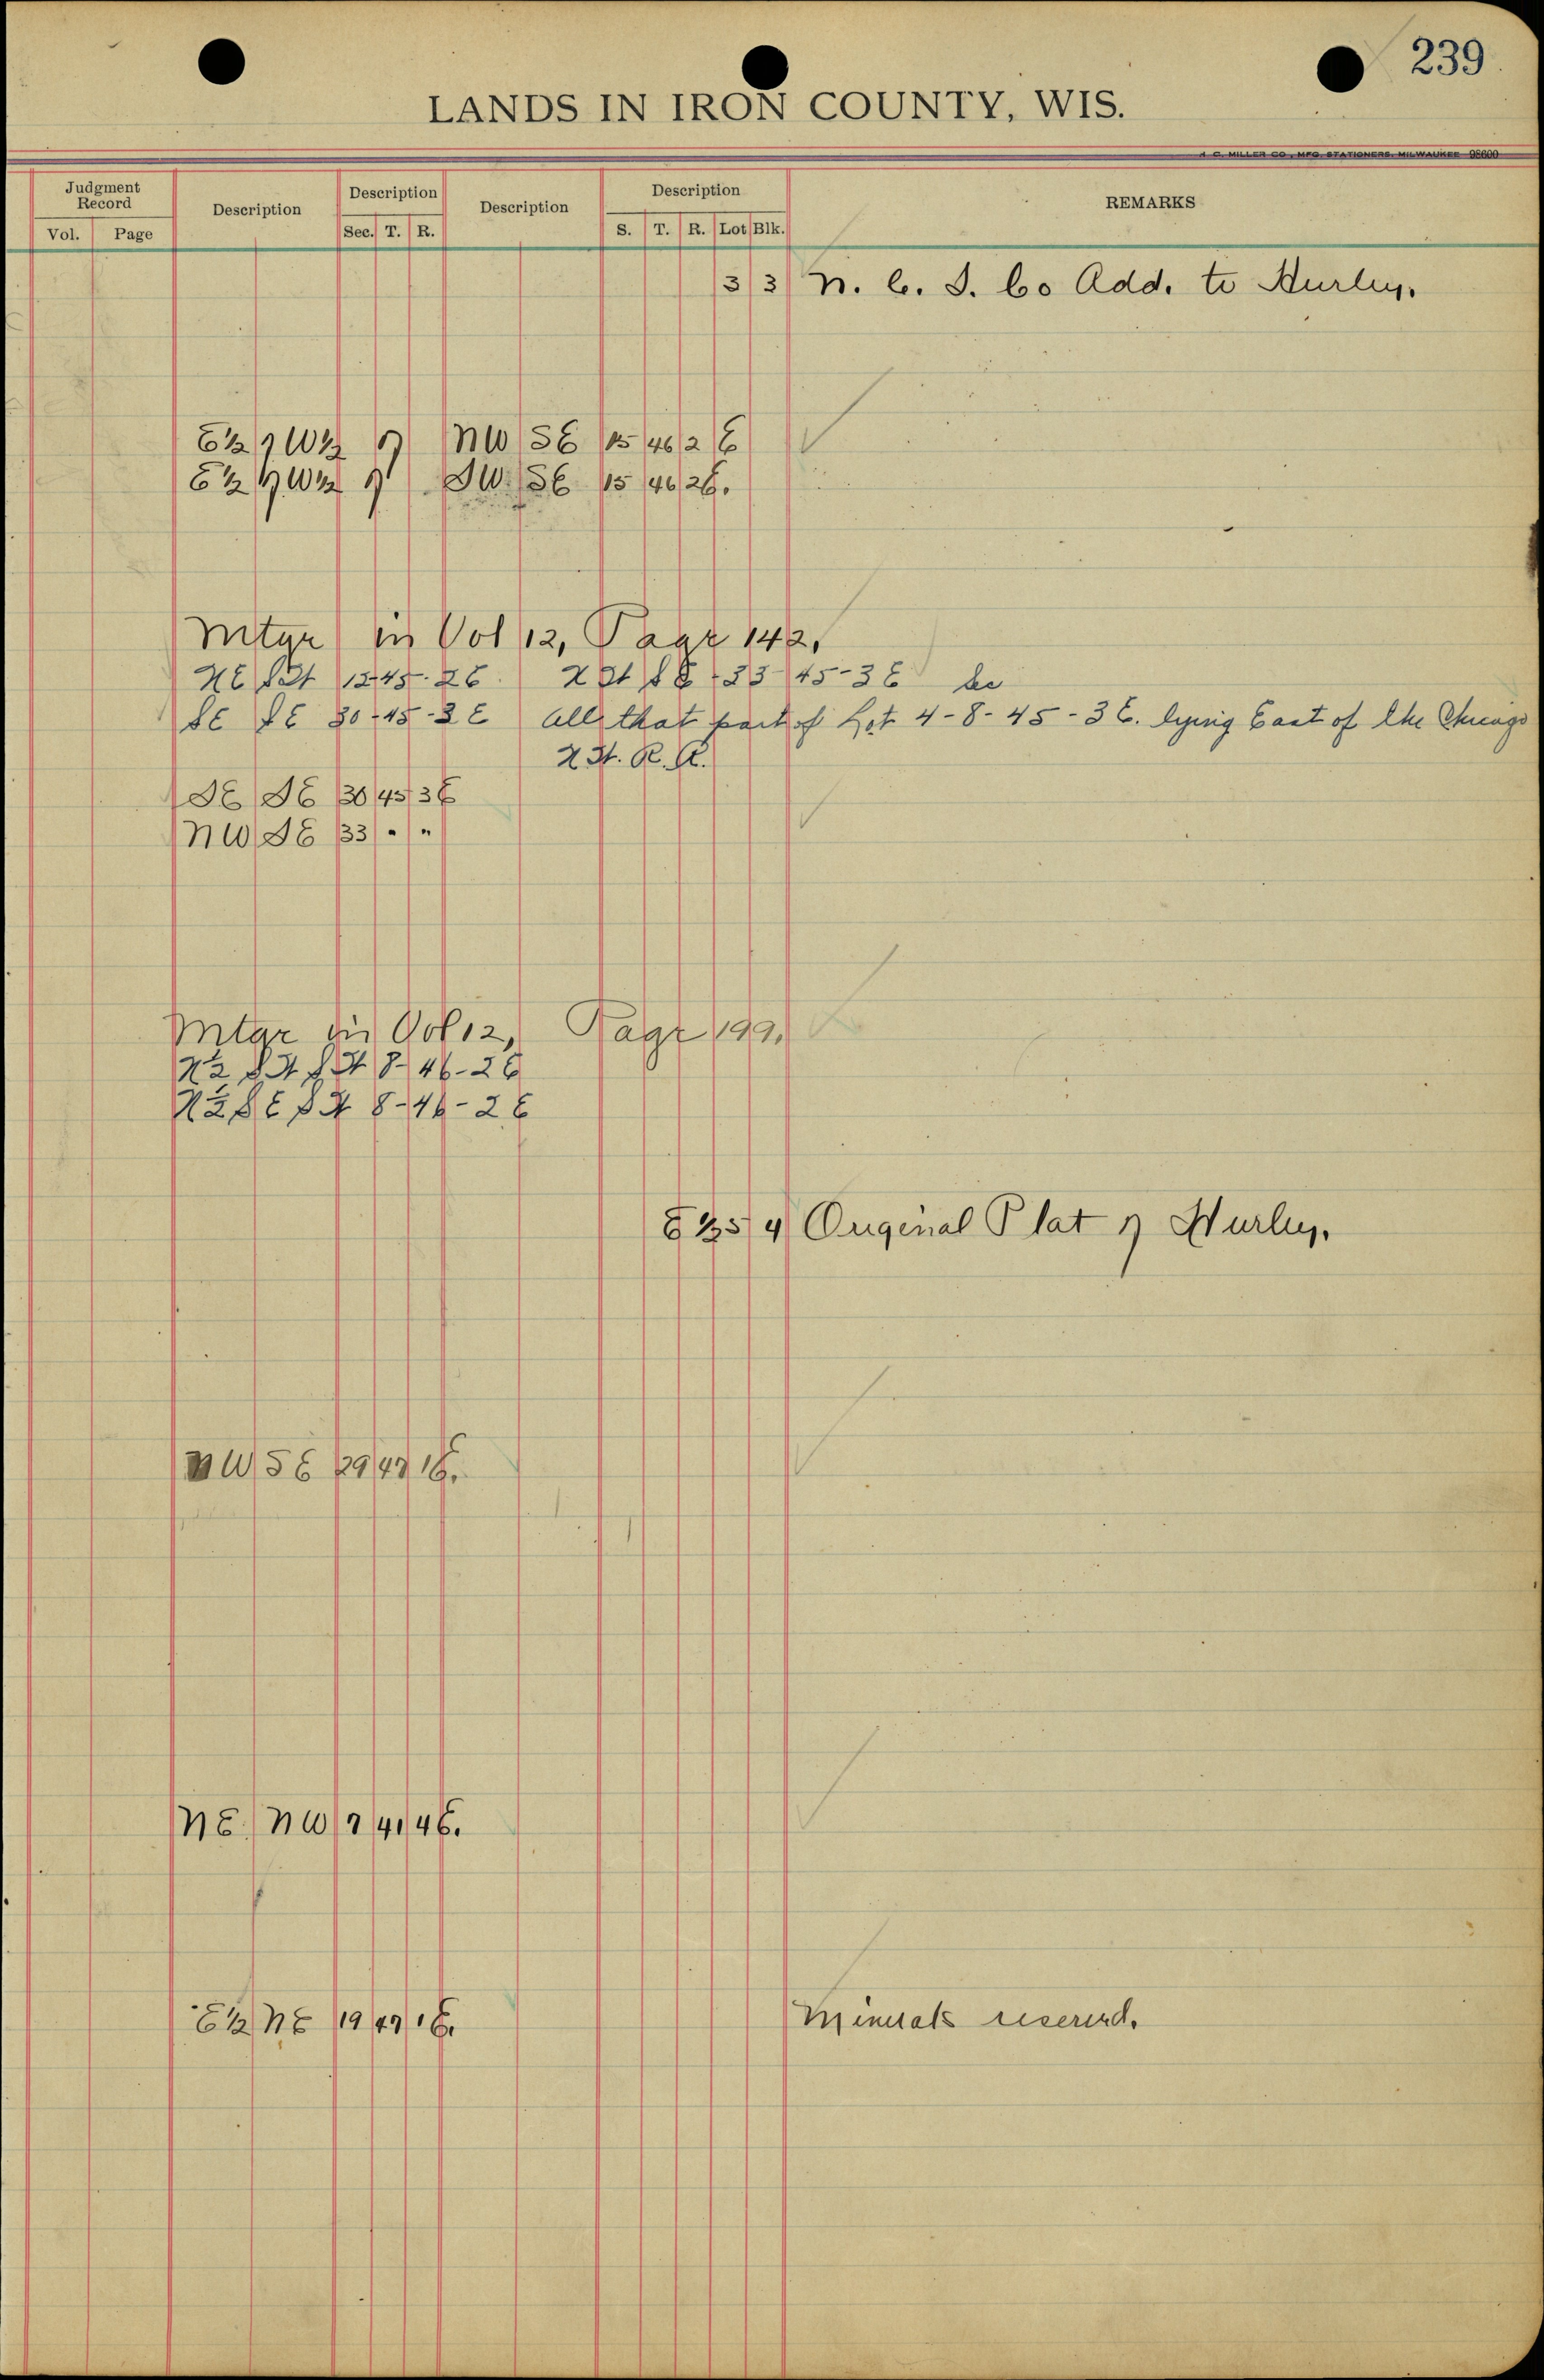 239
LANDS IN IRON COUNTY, WIS.
H. C. MILLER CO., MFG. STATIONERS, MILWAUKEE 98600
Judgment Record Description Description Description Description REMARKS
Vol. Page Sec. T. R. S. T. R. Lot Blk.
3 3 N. C. I. Co Add. to Hurley.
E½ of W½ of NW SE 15 46 2 E
E½ of W½ of SW SE 15 46 2 E.
Mtge in Vol 12, Page 142,
NE SW 12-45-2E. NW SE -33-45-3E
SE SE 30-45-3E All that part of Lot 4-8-45-3E. lying East of the Chicago
N W. R. R.
SE SE 30 45 3E
NW SE 33 " "
Mtge in Vol 12, Page 199,
N½ SW SW 8-46-2E
N½ SE SW 8-46-2E
E½ 5 4 Original Plat of Hurley.
NW SE 29 47 1E.
NE NW 7 41 4E.
E½ NE 19 47 1E. Minerals reserved.